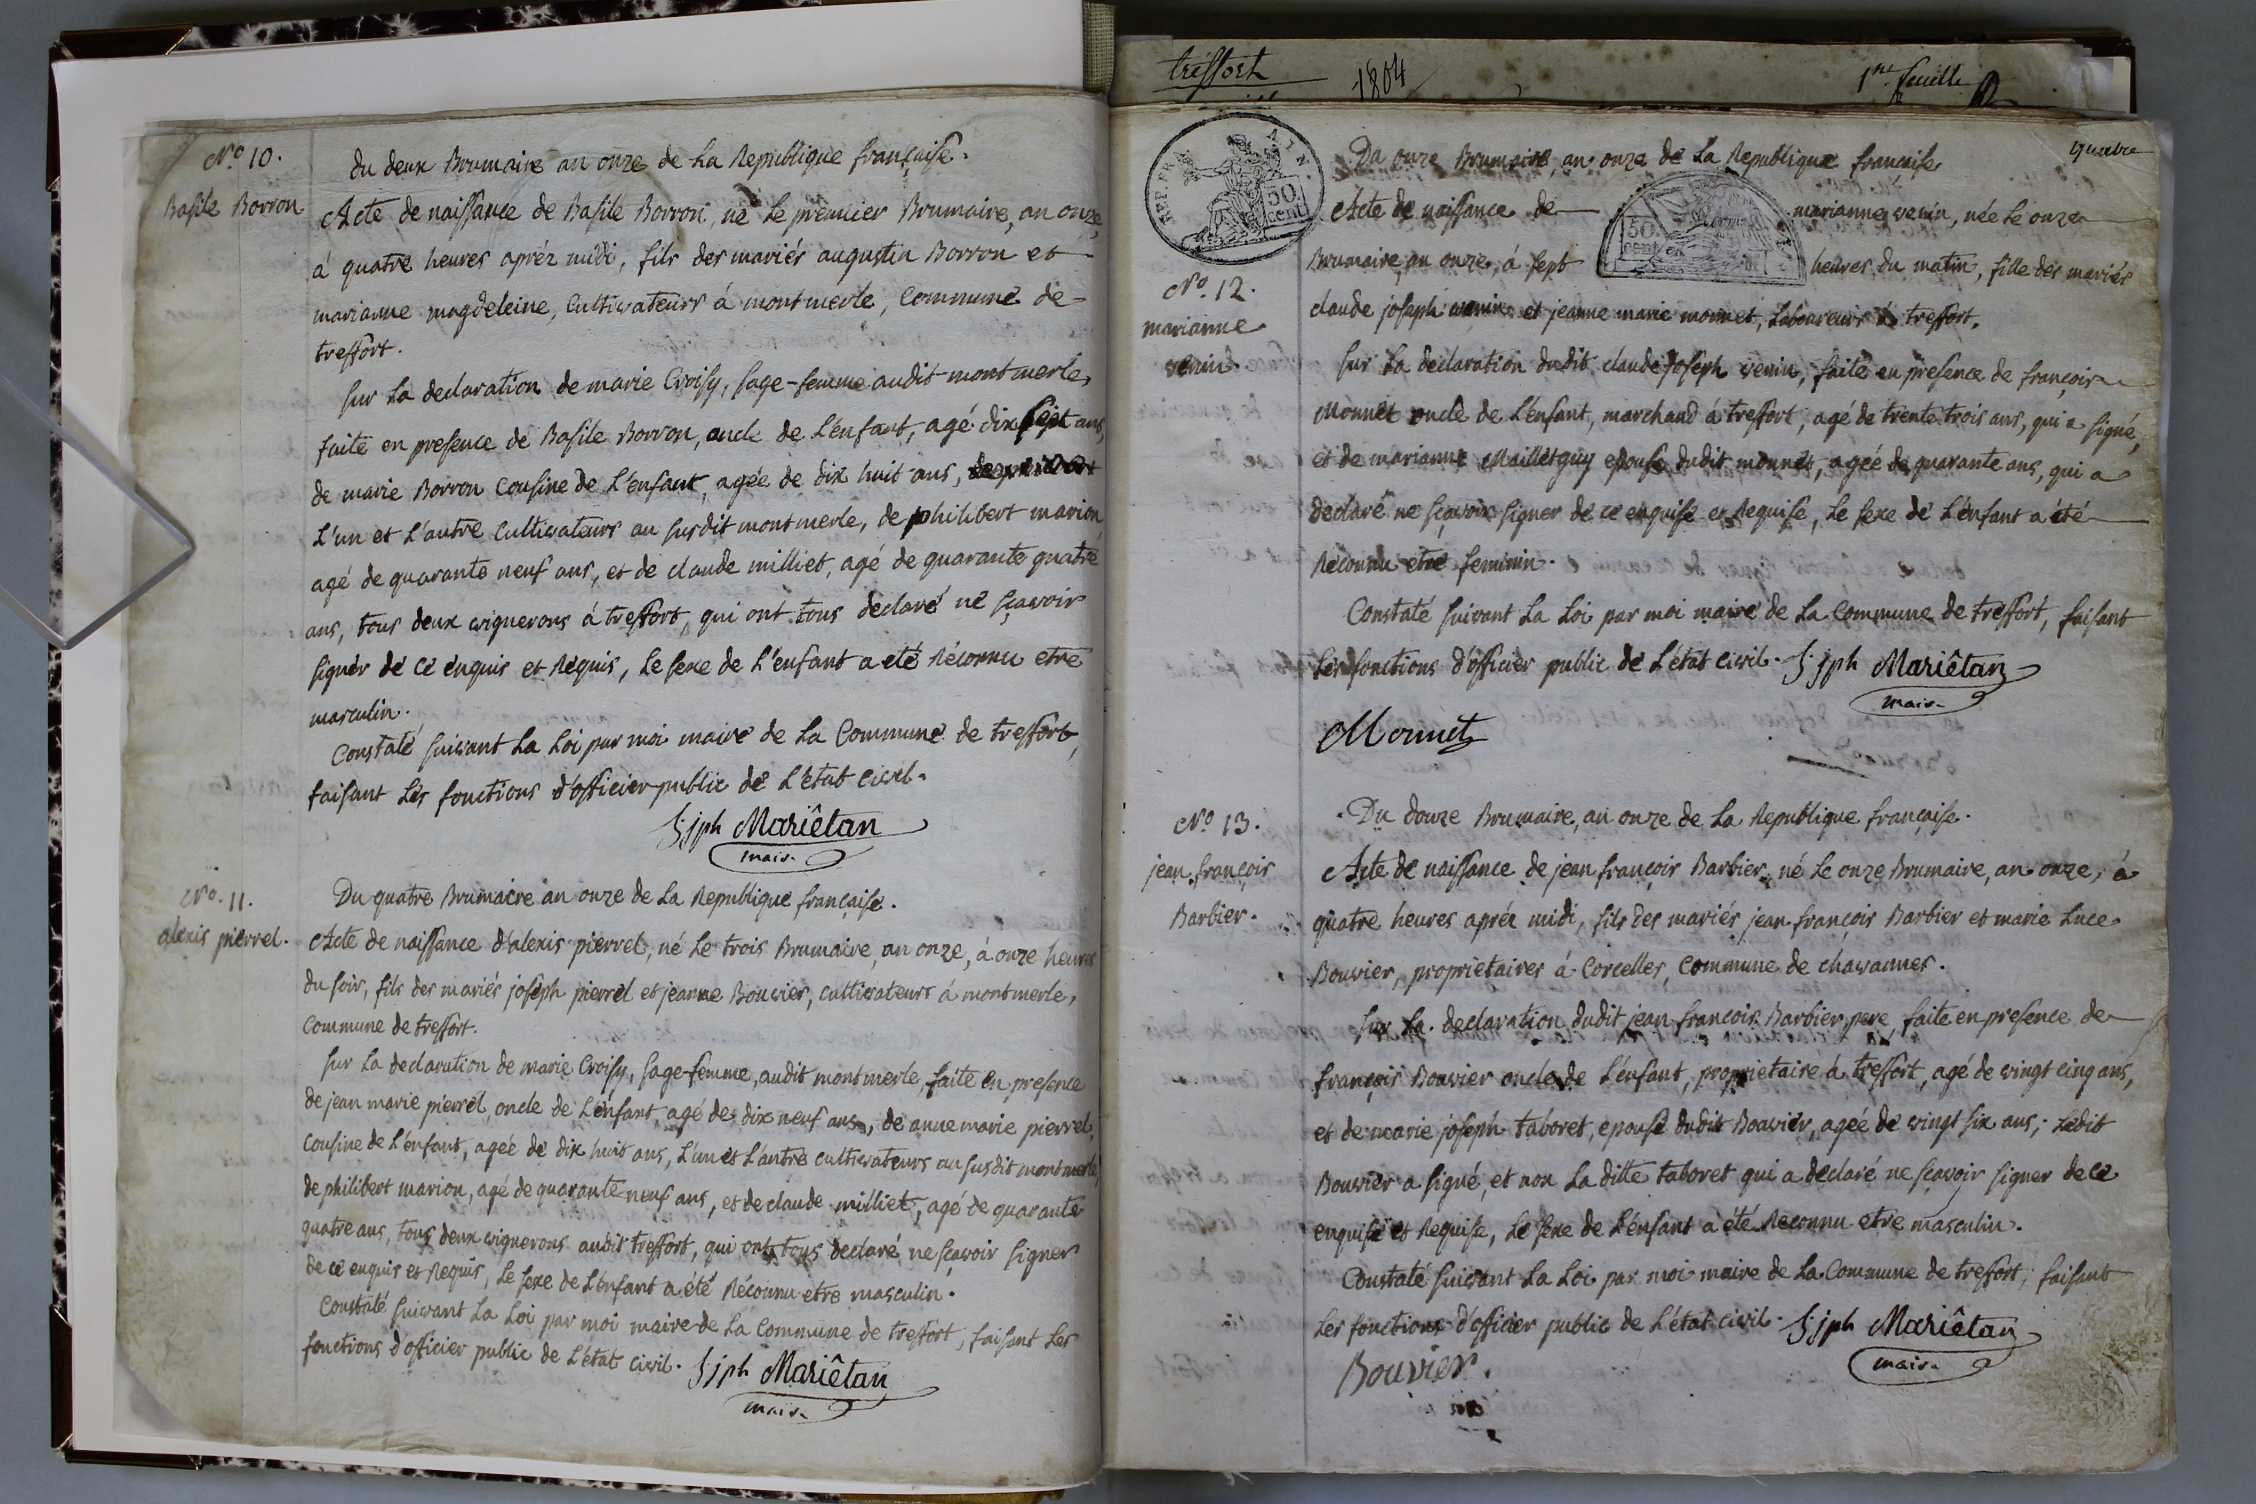 N.o 10.
Basile Borron
du deux Brumaire an onze de La Republique française.
Acte de naissance de Basile Borron, né Le premier Brumaire, an onze,
à quatre heures aprés midi, fils des mariés augustin Borron et
marianne magdeleine, Cultivateurs á montmerle, Commune de
treffort.
sur La declaration de marie Croisy, sage-femme audit montmerle,
faite en presence de Basile Borron, oncle de L'enfant, agé dix sept ans,
de marie Borron Cousine de L'enfant, agée de dix huit ans,
L'un et L'autre Cultivateurs au susdit montmerle, de philibert marion
agé de quarante neuf ans, et de claude milliet, agé de quarante quatre
ans, tous deux vignerons á treffort, qui ont tous declaré ne sçavoir
signer de ce enquis et Requis, Le sexe de L'enfant a eté Réconnu etre
masculin.
Constaté suivant La Loi par moi maire de La Commune de treffort,
faisant Les fonctions d'officier public de L'état civil.
jph Mariêtan
maire
N.o 11.
alexis pierrel.
Du quatre Brumaire an onze de La Republique française.
Acte de naissance d'alexis pierrel, né Le trois Brumaire, an onze, á onze heures
du soir, fils des mariés joseph pierrel et jeanne Bouvier, cultivateurs á montmerle,
Commune de treffort.
sur La declaration de marie Croisy, sage-femme, audit montmerle, faite en presence
de jean marie pierrel, oncle de L'enfant, agé de dix neuf ans, de anne marie pierrel,
Cousine de L'enfant, agée de dix huit ans, L'un et L'autre cultivateurs au susdit montmerle,
de philibert marion, agé de quarante neuf ans, et de claude milliet, agé de quarante
quatre ans, tous deux vignerons audit treffort, qui ont tous declaré ne sçavoir signer
de ce enquis et Requis, Le sexe de L'enfant a été Réconnu etre masculin.
Constaté suivant La Loi par moi maire de La Commune de treffort, faisant Les
fonctions d'officier public de L'état civil. jph Mariêtan
maire
tréffort 1804 1re feuille
quatre
REP. FRA. AIN.
50 cent
50 cent
Du onze Brumaire, an onze de La Republique française
Acte de naissance de marianne venin, née Le onze
Brumaire, an onze, á sept heures du matin, fille des mariés
claude joseph venin et jeanne marie monnet, Laboureurs á treffort.
N.o 12.
marianne
venin.
sur La declaration dudit claude joseph venin, faite en presence de françois
Monnet oncle de L'enfant, marchand á treffort, agé de trente trois ans, qui a signé,
et de marianne Mailletguy epouse dudit monnet, agée de quarante ans, qui a
declaré ne sçavoir signer de ce enquise et Requise, Le sexe de L'enfant a été
Réconnu etre feminin.
Constaté suivant La Loi par moi maire de La Commune de treffort, faisant
Les fonctions d'officier public de L'état civil. jph Mariêtan
maire
Monnet
N.o 13.
jean françois
Barbier.
Du douze Brumaire, an onze de La Republique française.
Acte de naissance de jean françois Barbier, né Le onze Brumaire, an onze, á
quatre heures aprés midi, fils des mariés jean françois Barbier et marie Luce
Bouvier, proprietaires á Corcelles, Commune de chavannes.
sur La declaration dudit jean françois Barbier pere, faite en presence de
françois Bouvier oncle de L'enfant, proprietaire á treffort, agé de vingt cinq ans,
et de marie joseph taboret, epouse dudit Bouvier, agée de vingt six ans; Ledit
Bouvier a signé, et non La ditte taboret qui a declaré ne sçavoir signer de ce
enquise et Requise, Le sexe de L'enfant a été Reconnu etre masculin.
Constaté suivant La Loi par moi maire de La Commune de treffort, faisant
Les fonctions d'officier public de L'état civil. jph Mariêtan
maire
Bouvier.